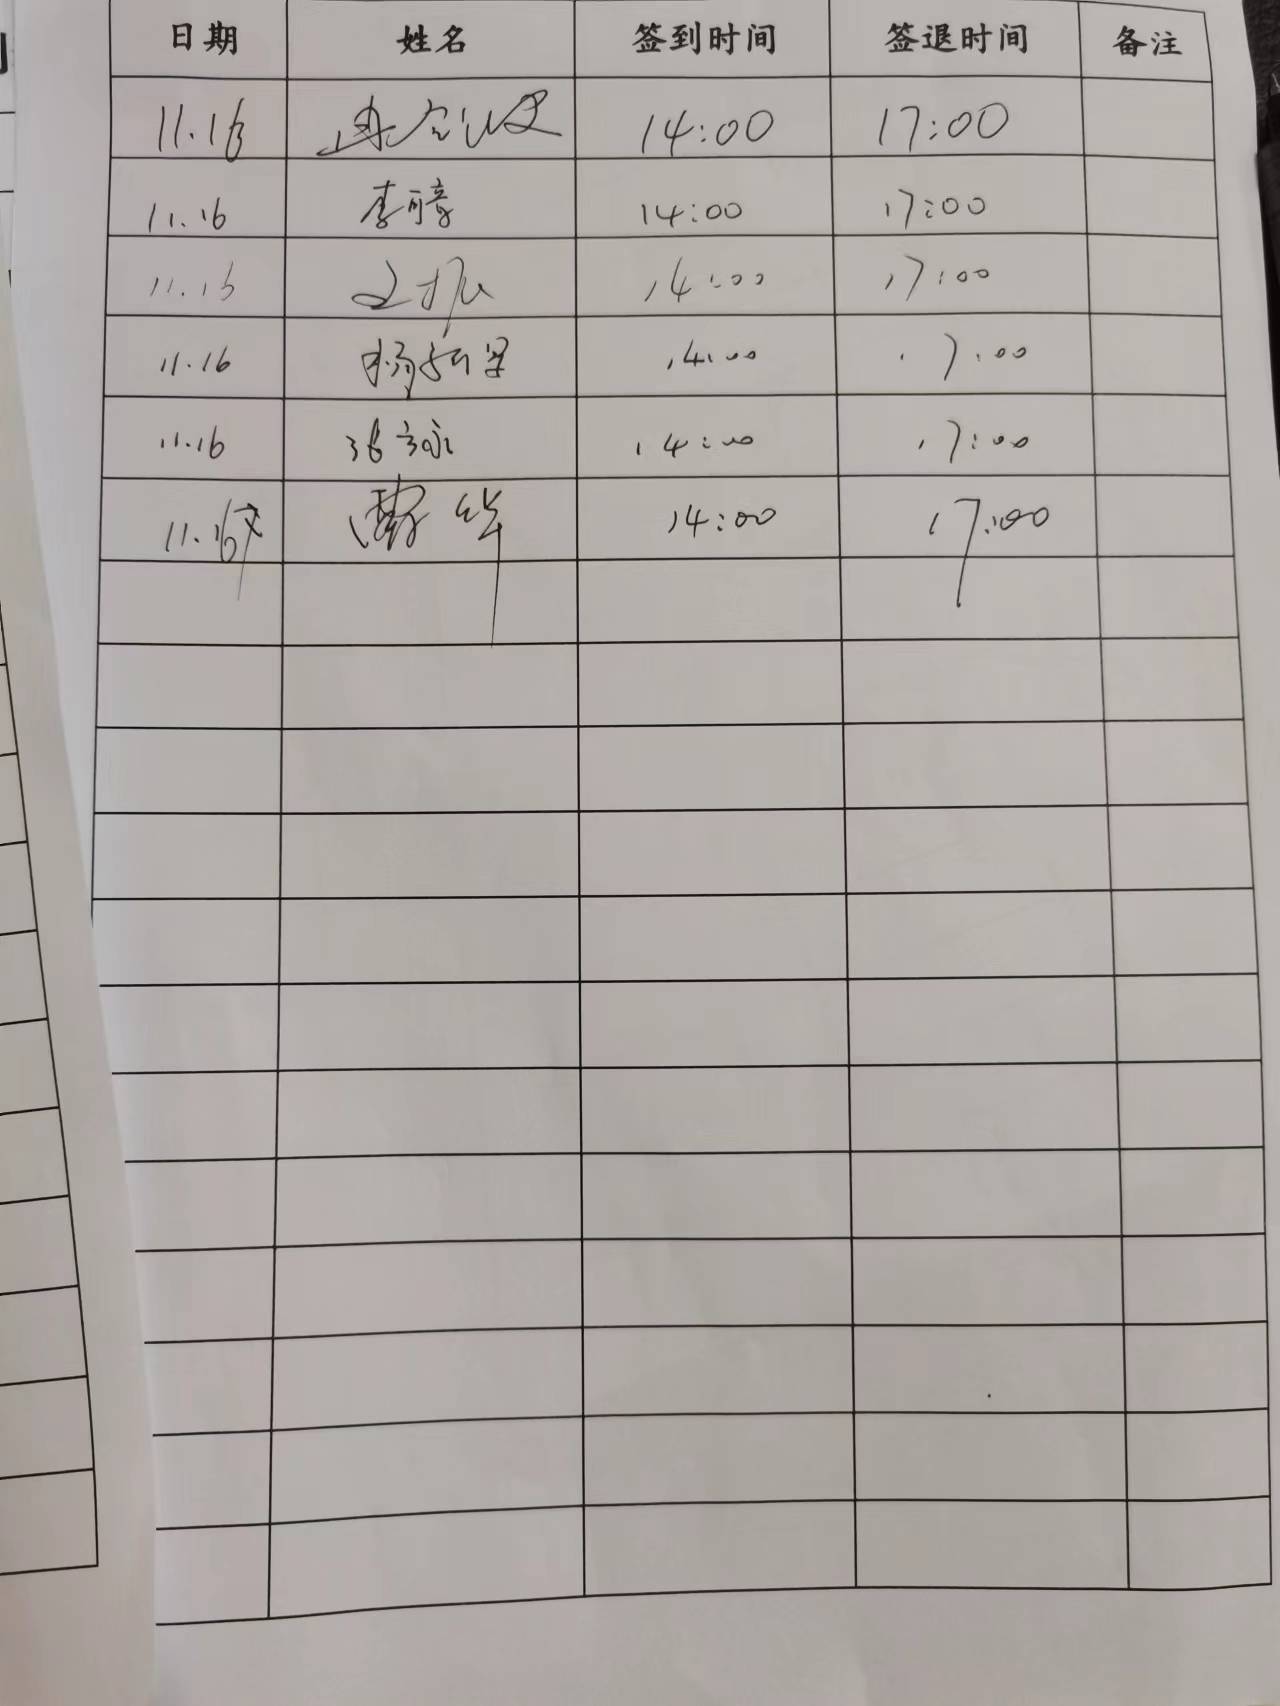 日期 姓名 签到时间 签退时间 备注
11.16 14:00 17:00
11.16 李 14:00 17:00
11.16 14:00 17:00
11.16 杨 14:00 17:00
11.16 张 14:00 17:00
11.16 华 14:00 17:00